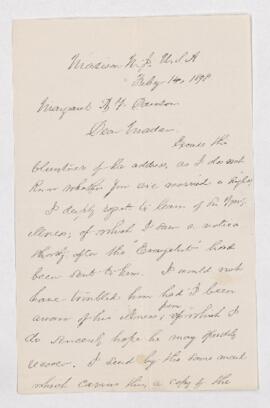 Madison N.J. U.S.A
Feby 14, 1898
Margaret A. F.
Dear Madam
Excuse the
of the address, as I do not
know whether you are married or single
I deeply regret to learn of
illness, of which I saw a notice
shortly after the "Evangelist" had
been sent to him. I would not
have troubled him had I been
aware of his illness, from which I
do sincerely hope he may quickly
recover. I send by the same mail
which carries this, a copy of the